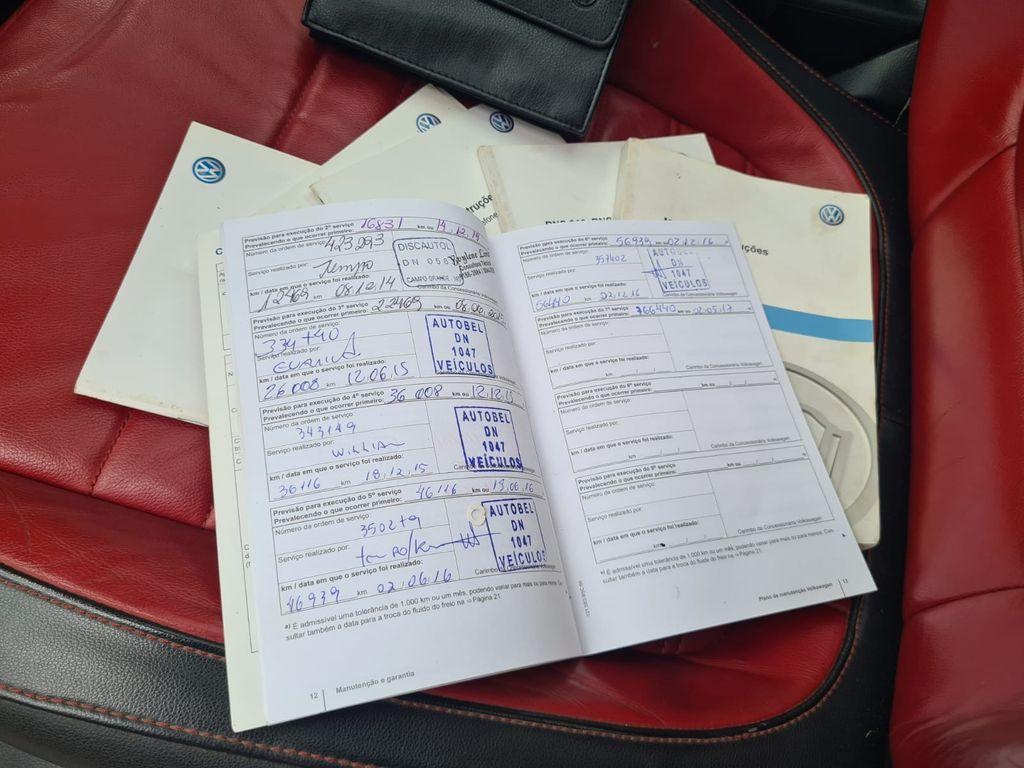 Previsão para execução do 2º serviço 16831 km ou 14.12.14
Prevalecendo o que ocorrer primeiro:
Número da ordem de serviço: 423.093
DISCAUTOL
DN 058
CAMPO GRANDE
Serviço realizado por: Tempo
km / data em que o serviço foi realizado:
12469 km 08.12.14
Carimbo da Concessionária Volkswagen
Previsão para execução do 3º serviço 22469 km ou
Prevalecendo o que ocorrer primeiro:
Número da ordem de serviço:
Serviço realizado por:
km / data em que o serviço foi realizado:
26 008 km 12.06.15
AUTOBEL
DN
1047
VEÍCULOS
Previsão para execução do 4º serviço 36 008 km ou 12.12.15
Prevalecendo o que ocorrer primeiro:
Número da ordem de serviço
343149
Serviço realizado por:
WILLIAN
km / data em que o serviço foi realizado:
36116 km 18.12.15
AUTOBEL
DN
1047
VEÍCULOS
Previsão para execução do 5º serviço 46116 km ou 13.06.16
Prevalecendo o que ocorrer primeiro:
Número da ordem de serviço:
350279
Serviço realizado por:
km / data em que o serviço foi realizado:
46939 km 02.06.16
AUTOBEL
DN
1047
VEÍCULOS
a) É admissível uma tolerância de 1.000 km ou um mês, podendo variar para mais ou para menos. Con-
sultar também a data para a troca do fluido do freio na ⇒ Página 21.
12 Manutenção e garantia
Previsão para execução do 6º serviço 56939 km ou 02.12.16
Prevalecendo o que ocorrer primeiro:
Número da ordem de serviço:
357402
Serviço realizado por:
km / data em que o serviço foi realizado:
56440 km 02.12.16
AUTOBEL
DN
1047
VEÍCULOS
Carimbo da Concessionária Volkswagen
Previsão para execução do 7º serviço 66440 km ou
Prevalecendo o que ocorrer primeiro:
Número da ordem de serviço:
Serviço realizado por:
km / data em que o serviço foi realizado:
km
Carimbo da Concessionária Volkswagen
Previsão para execução do 8º serviço km ou
Prevalecendo o que ocorrer primeiro:
Número da ordem de serviço:
Serviço realizado por:
km / data em que o serviço foi realizado:
km
Carimbo da Concessionária Volkswagen
Previsão para execução do 9º serviço km ou
Prevalecendo o que ocorrer primeiro:
Número da ordem de serviço:
Serviço realizado por:
km / data em que o serviço foi realizado:
km
Carimbo da Concessionária Volkswagen
a) É admissível uma tolerância de 1.000 km ou um mês, podendo variar para mais ou para menos. Con-
sultar também a data para a troca do fluido do freio na ⇒ Página 21.
Plano de manutenção Volkswagen 13